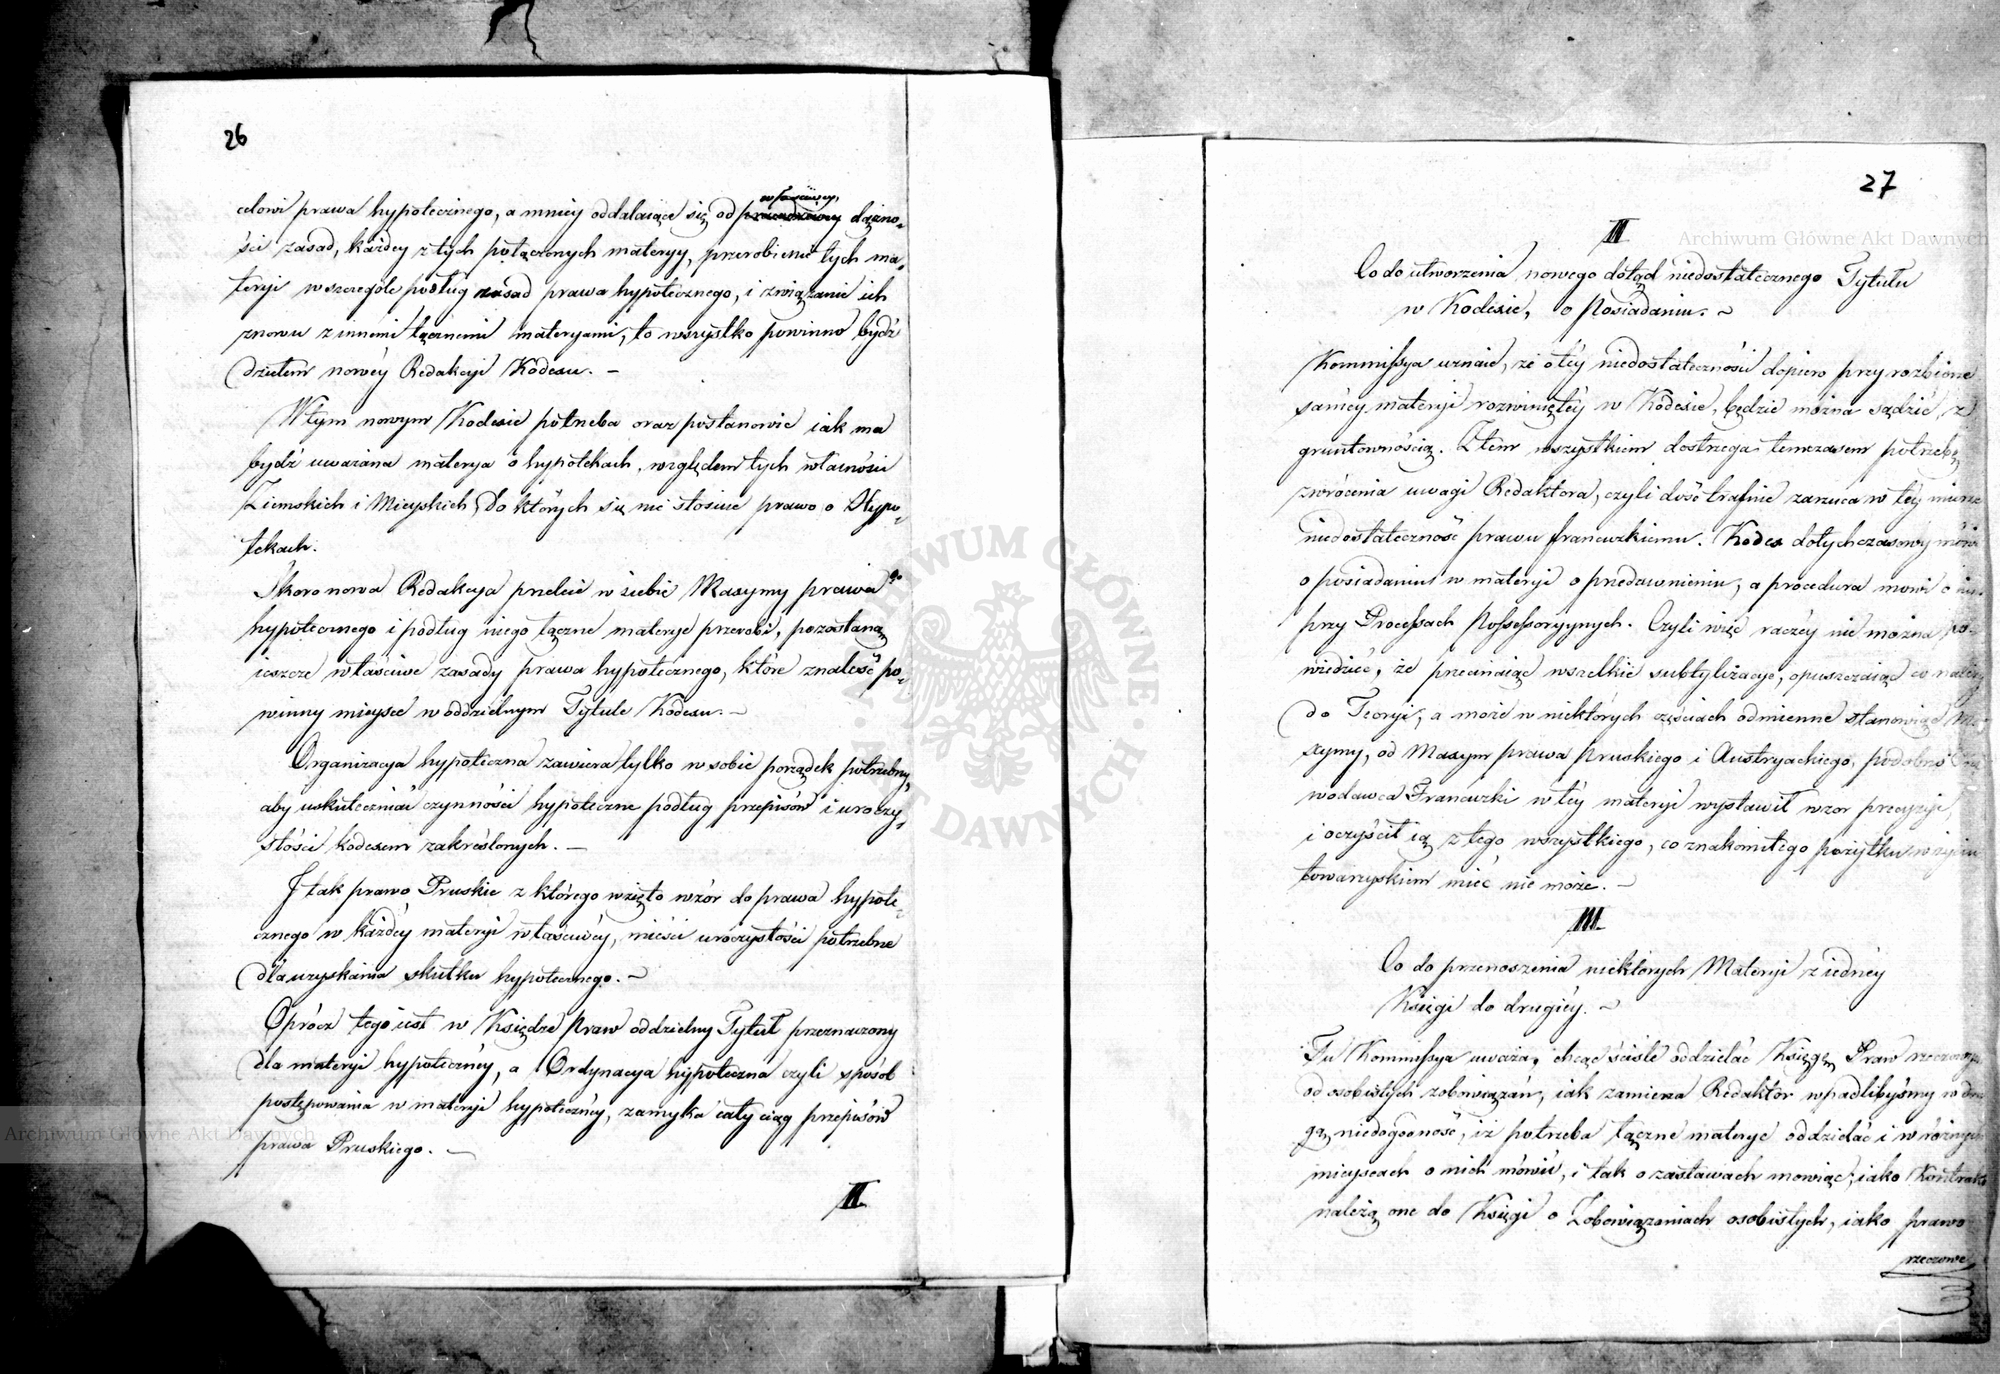 26
celowi prawa hypotecznego, a mniey oddalaiące się od właściwey dążno-
ści zasad, każdey z tych połączonych materyy, przerobienie tych ma-
teryi w szczególe podług zasad prawa hypotecznego, i związanie ich
znowu z innemi łącznemi materyami, to wszystko powinno bydź
dziełem nowéy Redakcyi Kodexu. —
W tym nowym Kodexie potrzeba oraz postanowić iak ma
bydź uważana materya o hypotekach, względem tych własności
Ziemskich i Mieyskich, do których się nie stosuie prawo o Hypo-
tekach.
Skoro nowa Redakcya przeleie w siebie Maxymy prawa
hypotecznego i podług niego łączne materye przerobi, pozostaną
ieszcze właściwe zasady prawa hypotecznego, które znaleść po-
winny mieysce w oddzielnym Tytule Kodexu. —
Organizacya hypoteczna zawiera tylko w sobie porządek potrzebny,
aby uskuteczniać czynności hypoteczne podług przepisów i uroczy-
stości kodexem zakreślonych. —
I tak prawo Pruskie z którego wzięto wzór do prawa hypote-
cznego w każdéy materyi właściwéy, mieści uroczystości potrzebne
dla uzyskania skutku hypotecznego. —
Oprócz tego iest w Księdze Praw oddzielny Tytuł przeznaczony
dla materyi hypotecznéy, a Ordynacya hypoteczna czyli sposób
postępowania w materyi hypotecznéy, zamyka cały ciąg przepisów
prawa Pruskiego. —
II
27
II
Co do utworzenia nowego dotąd niedostatecznego Tytułu
w Kodexie, o Posiadaniu. —
Kommissya uznaie, że o téy niedostateczności dopiero przy rozbiorze
saméy materyi rozwiniętéy w Kodexie, będzie można sądzić, z
gruntownością. Z tem wszystkiem dostrzega temczasem potrzebę,
zwrócenia uwagi Redaktora, czyli dość trafnie zarzuca w téy mierze
niedostateczność prawu francuzkiemu. Kodex dotychczasowy mówi
o posiadaniu w materyi o przedawnieniu, a procedura mowi o
przy Processach Possessoryynych. Czyli więc raczéy nie można po-
wiedzieć, że przecinaiąc wszelkie subtylizacye, opuszczaiąc co należy
do Teoryi, a może w niektórych częściach odmienne stanowiąc Ma-
xymy, od Maxym prawa Pruskiego i Austryackiego, podobno
wodawca Francuzki w téy materyi wystawił wzor precyzyi,
i oczyścił ią z tego wszystkiego, co znakomitego pożytku w życiu
towarzyskiem mieć nie może. —
III
Co do przenoszenia niektórych Materyi z iednéy
Księgi do drugiéy. —
Tu Kommissya uważa, chcąc ściśle oddzielać Księgę Praw rzeczowych
od osobistych zobowiązań, iak zamierza Redaktor wpadlibyśmy w dru-
gą niedogodność, iż potrzeba łączne materye oddzielać i w różnych
mieyscach o nich mówić, i tak o zastawach mowiąc, iako Kontrakt
należą one do Księgi o Zobowiązaniach osobistych, iako prawo
rzeczowe
Archiwum Główne Akt Dawnych
Archiwum Główne Akt Dawnych
ARCHIWUM GŁÓWNE AKT DAWNYCH